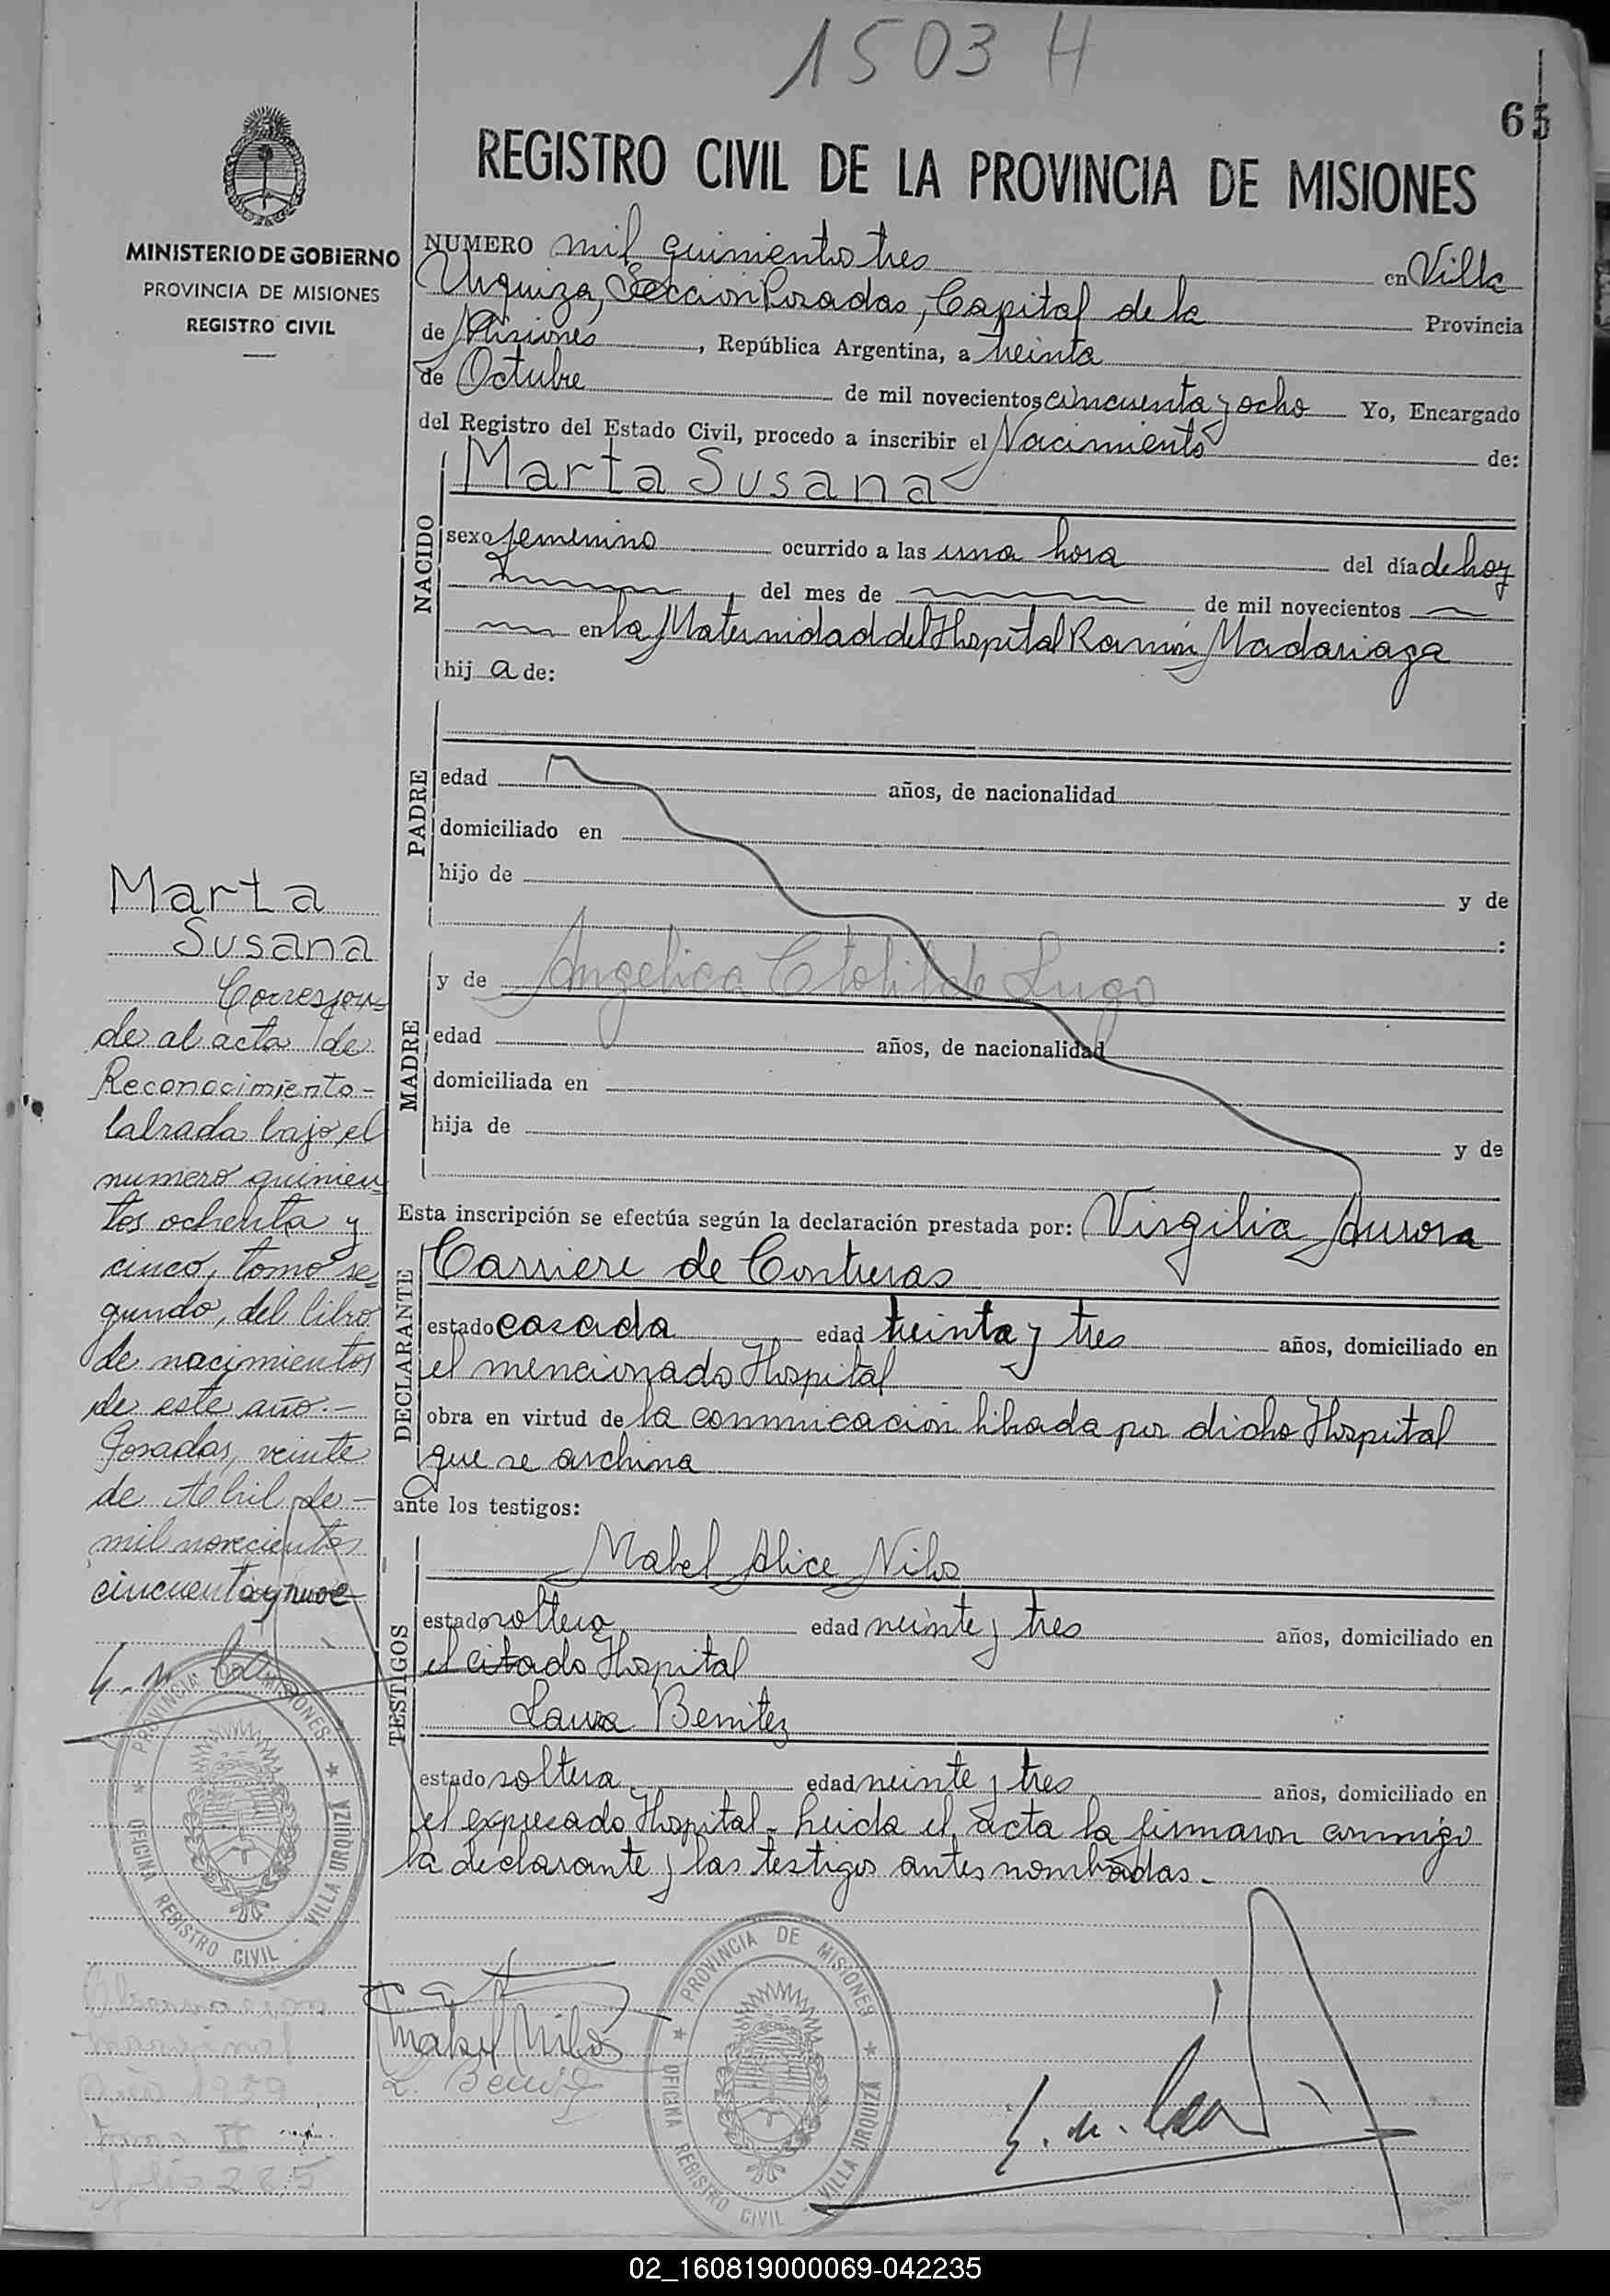 1503 H
65
REGISTRO CIVIL DE LA PROVINCIA DE MISIONES
MINISTERIO DE GOBIERNO
PROVINCIA DE MISIONES
REGISTRO CIVIL
NUMERO mil quinientos tres en Villa
Urquiza, Sección Posadas, Capital de la Provincia
de Misiones, República Argentina, a treinta
de Octubre de mil novecientos cincuenta y ocho Yo, Encargado
del Registro del Estado Civil, procedo a inscribir el Nacimiento de:
NACIDO
Marta Susana
sexo femenino ocurrido a las una hora del día de hoy
del mes de de mil novecientos
en la Maternidad del Hospital Ramón Madariaga
hij a de:
PADRE
edad años, de nacionalidad
domiciliado en
hijo de y de
:
MADRE
y de Angelica Clotilde Lugo
edad años, de nacionalidad
domiciliada en
hija de y de
Esta inscripción se efectúa según la declaración prestada por: Virgilia Aurora
DECLARANTE
Carriere de Contreras
estado casada edad treinta y tres años, domiciliado en
el mencionado Hospital
obra en virtud de la comunicación librada por dicho Hospital
que se archiva
ante los testigos:
TESTIGOS
Mabel Alice Nilos
estado soltera edad veinte y tres años, domiciliado en
el citado Hospital
Laura Benitez
estado soltera edad veinte y tres años, domiciliado en
el expresado Hospital. Leída el acta la firmaron conmigo
la declarante y las testigos antes nombradas.
Marta
Susana
Correspon-
de al acta de
Reconocimiento
labrada bajo el
numero quinien-
tos ochenta y
cinco, tomo se-
gundo, del libro
de nacimientos
de este año.-
Posadas, veinte
de Abril de
mil novecientos
cincuenta y nueve
PROVINCIA DE MISIONES
OFICINA REGISTRO CIVIL - VILLA URQUIZA
Mabel Nilos
L. Benitez
PROVINCIA DE MISIONES
OFICINA REGISTRO CIVIL - VILLA URQUIZA
02_160819000069-042235